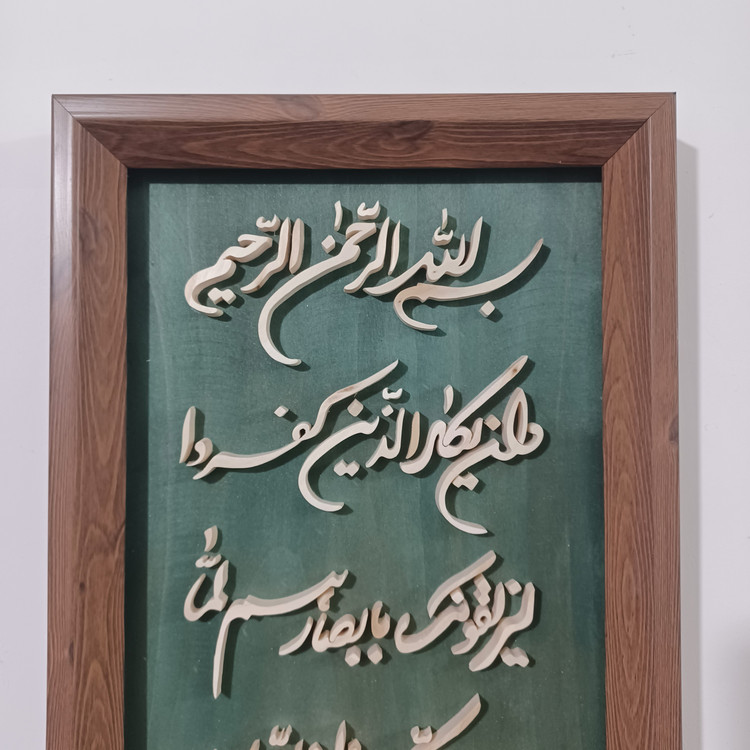 بسم الله الرحمٰن الرحیم
وان یکاد الذین کفروا
لیزلقونک بابصارهم لمّا